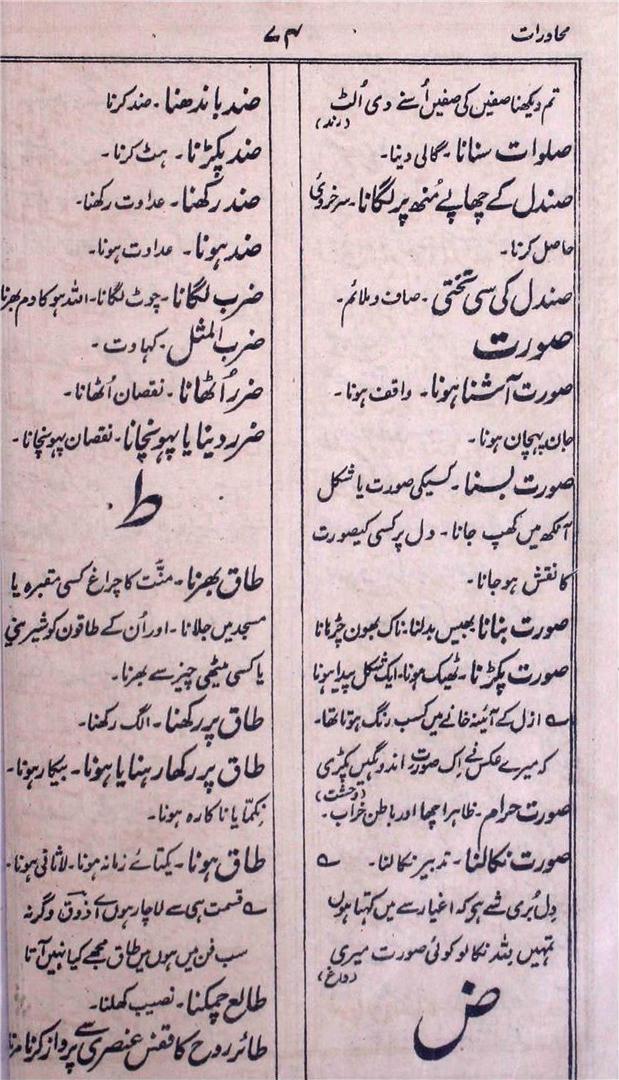 محاورات
۷۴
تم دیکھنا صفین کی صفین اُسنے دی اُلٹ (رند)
صلوات سنانا۔ گالی دینا۔
صندل کے چھاپے مُنھ پر لگانا۔ سرخروئی
حاصل کرنا۔
صندل کی سی تختی۔ صاف و ملائم۔
صورت
صورت آشنا ہونا۔ واقف ہونا۔
جان پہچان ہونا۔
صورت بسنا۔ کسیکی صورت یا شکل
آنکھ میں کھپ جانا۔ دل پر کسی کیصورت
کا نقش ہو جانا۔
صورت بنانا بھیس بدلنا۔ ناک بھون چڑہانا
صورت پکڑنا۔ ٹھیک ہونا۔ ایک شکل پیدا ہونا
؎ ازل کے آئینہ خانے میں کسب رنگ ہوتا تھا۔
کہ میرے عکس نے اِک صورت اندوہگیں پکڑی (وحشت)
صورت حرام۔ ظاہرا چھا اور باطن خراب۔
صورت نکالنا۔ تدبیر نکالنا۔ ؎
دِل بُری شے ہی کہ اغیار سے میں کہتا ہوں
تمہیں بتہ نکالو کوئی صورت میری (داغ)
ض
ضد باندھنا۔ ضد کرنا
ضد پکڑنا۔ ہٹ کرنا۔
ضد رکھنا۔ عداوت رکھنا۔
ضد ہونا۔ عداوت ہونا۔
ضرب لگانا۔ چوٹ لگانا۔ اللہ ہو کا دم بھرنا
ضرب المثل۔ کہاوت۔
ضرر اُٹھانا۔ نقصان اُٹھانا۔
ضرر دینا یا پہونچانا۔ نقصان پہونچانا۔
ط
طاق بھرنا۔ منّت کا چراغ کسی مقبرہ یا
مسجد میں جلانا۔ اور اُن کے طاقون کو شیرینی
یا کسی میٹھی چیز سے بھرنا۔
طاق پر رکھنا۔ الگ رکھنا۔
طاق پر رکھا رہنا یا ہونا۔ بیکار ہونا۔
نِکمّا یا ناکارہ ہونا۔
طاق ہونا۔ یکتائے زمانہ ہونا۔ لاثانی ہونا۔
؎ قسمت ہی سے لاچار ہوں اے ذوقؔ وگرنہ
سب فن میں ہوں میں طاق مجھے کیا نہیں آتا
طالع چمکنا۔ نصیب کھلنا۔
طائر روح کا قفس عنصری سے پرواز کرنا مرنا